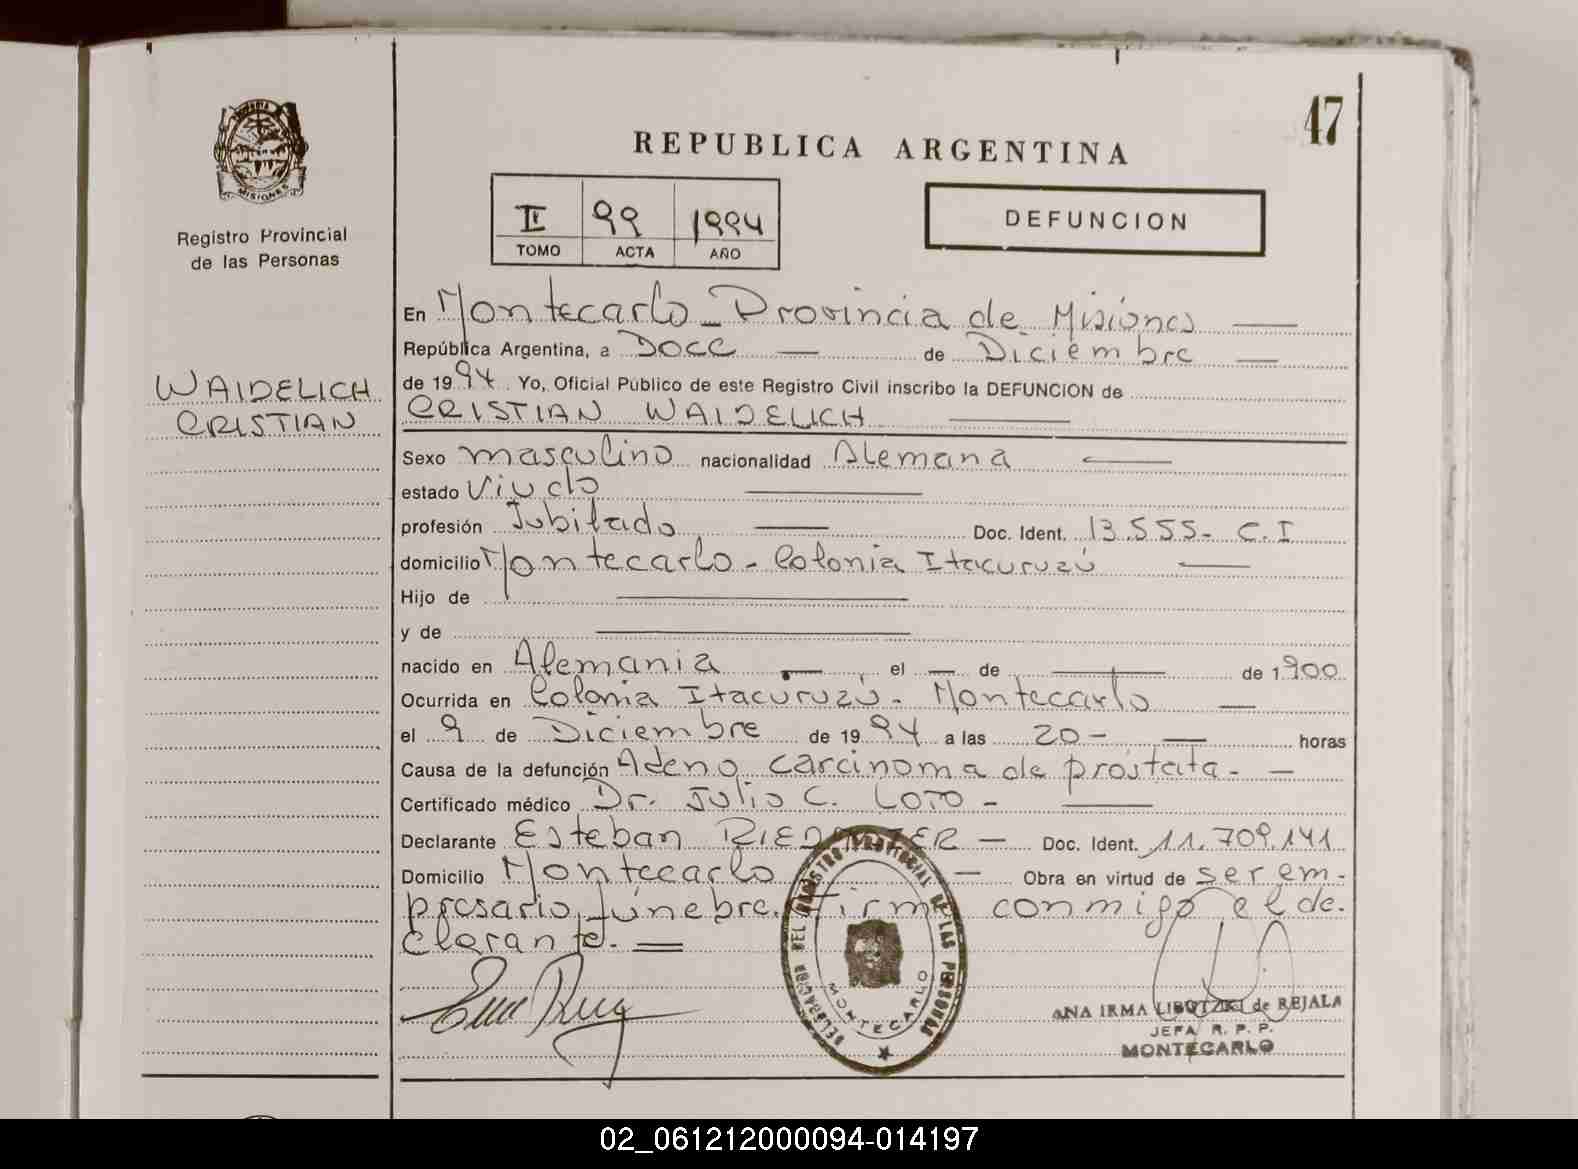 47
REPUBLICA ARGENTINA
MISIONES
Registro Provincial
de las Personas
II 99 1994
TOMO ACTA AÑO
DEFUNCION
WAIDELICH
CRISTIAN
En Montecarlo - Provincia de Misiones
República Argentina, a Doce de Diciembre
de 1994. Yo, Oficial Público de este Registro Civil inscribo la DEFUNCION de
CRISTIAN WAIDELICH
Sexo masculino nacionalidad Alemana
estado Viudo
profesión Jubilado Doc. Ident. 13.555- C.I
domicilio Montecarlo - Colonia Itacuruzú
Hijo de
y de
nacido en Alemania, el — de — de 1900
Ocurrida en Colonia Itacuruzú - Montecarlo
el 9 de Diciembre de 1994 a las 20- horas
Causa de la defunción Adeno carcinoma de próstata.-
Certificado médico Dr. Julio C. LOTO -
Declarante Esteban — Doc. Ident. 11.709.141
Domicilio Montecarlo — Obra en virtud de ser em-
presario fúnebre. Firma conmigo el de-
clarante.=
DELEGACION DEL REGISTRO PROVINCIAL DE LAS PERSONAS
MONTECARLO
ANA IRMA de REJALA
JEFA R. P. P.
MONTECARLO
02_061212000094-014197